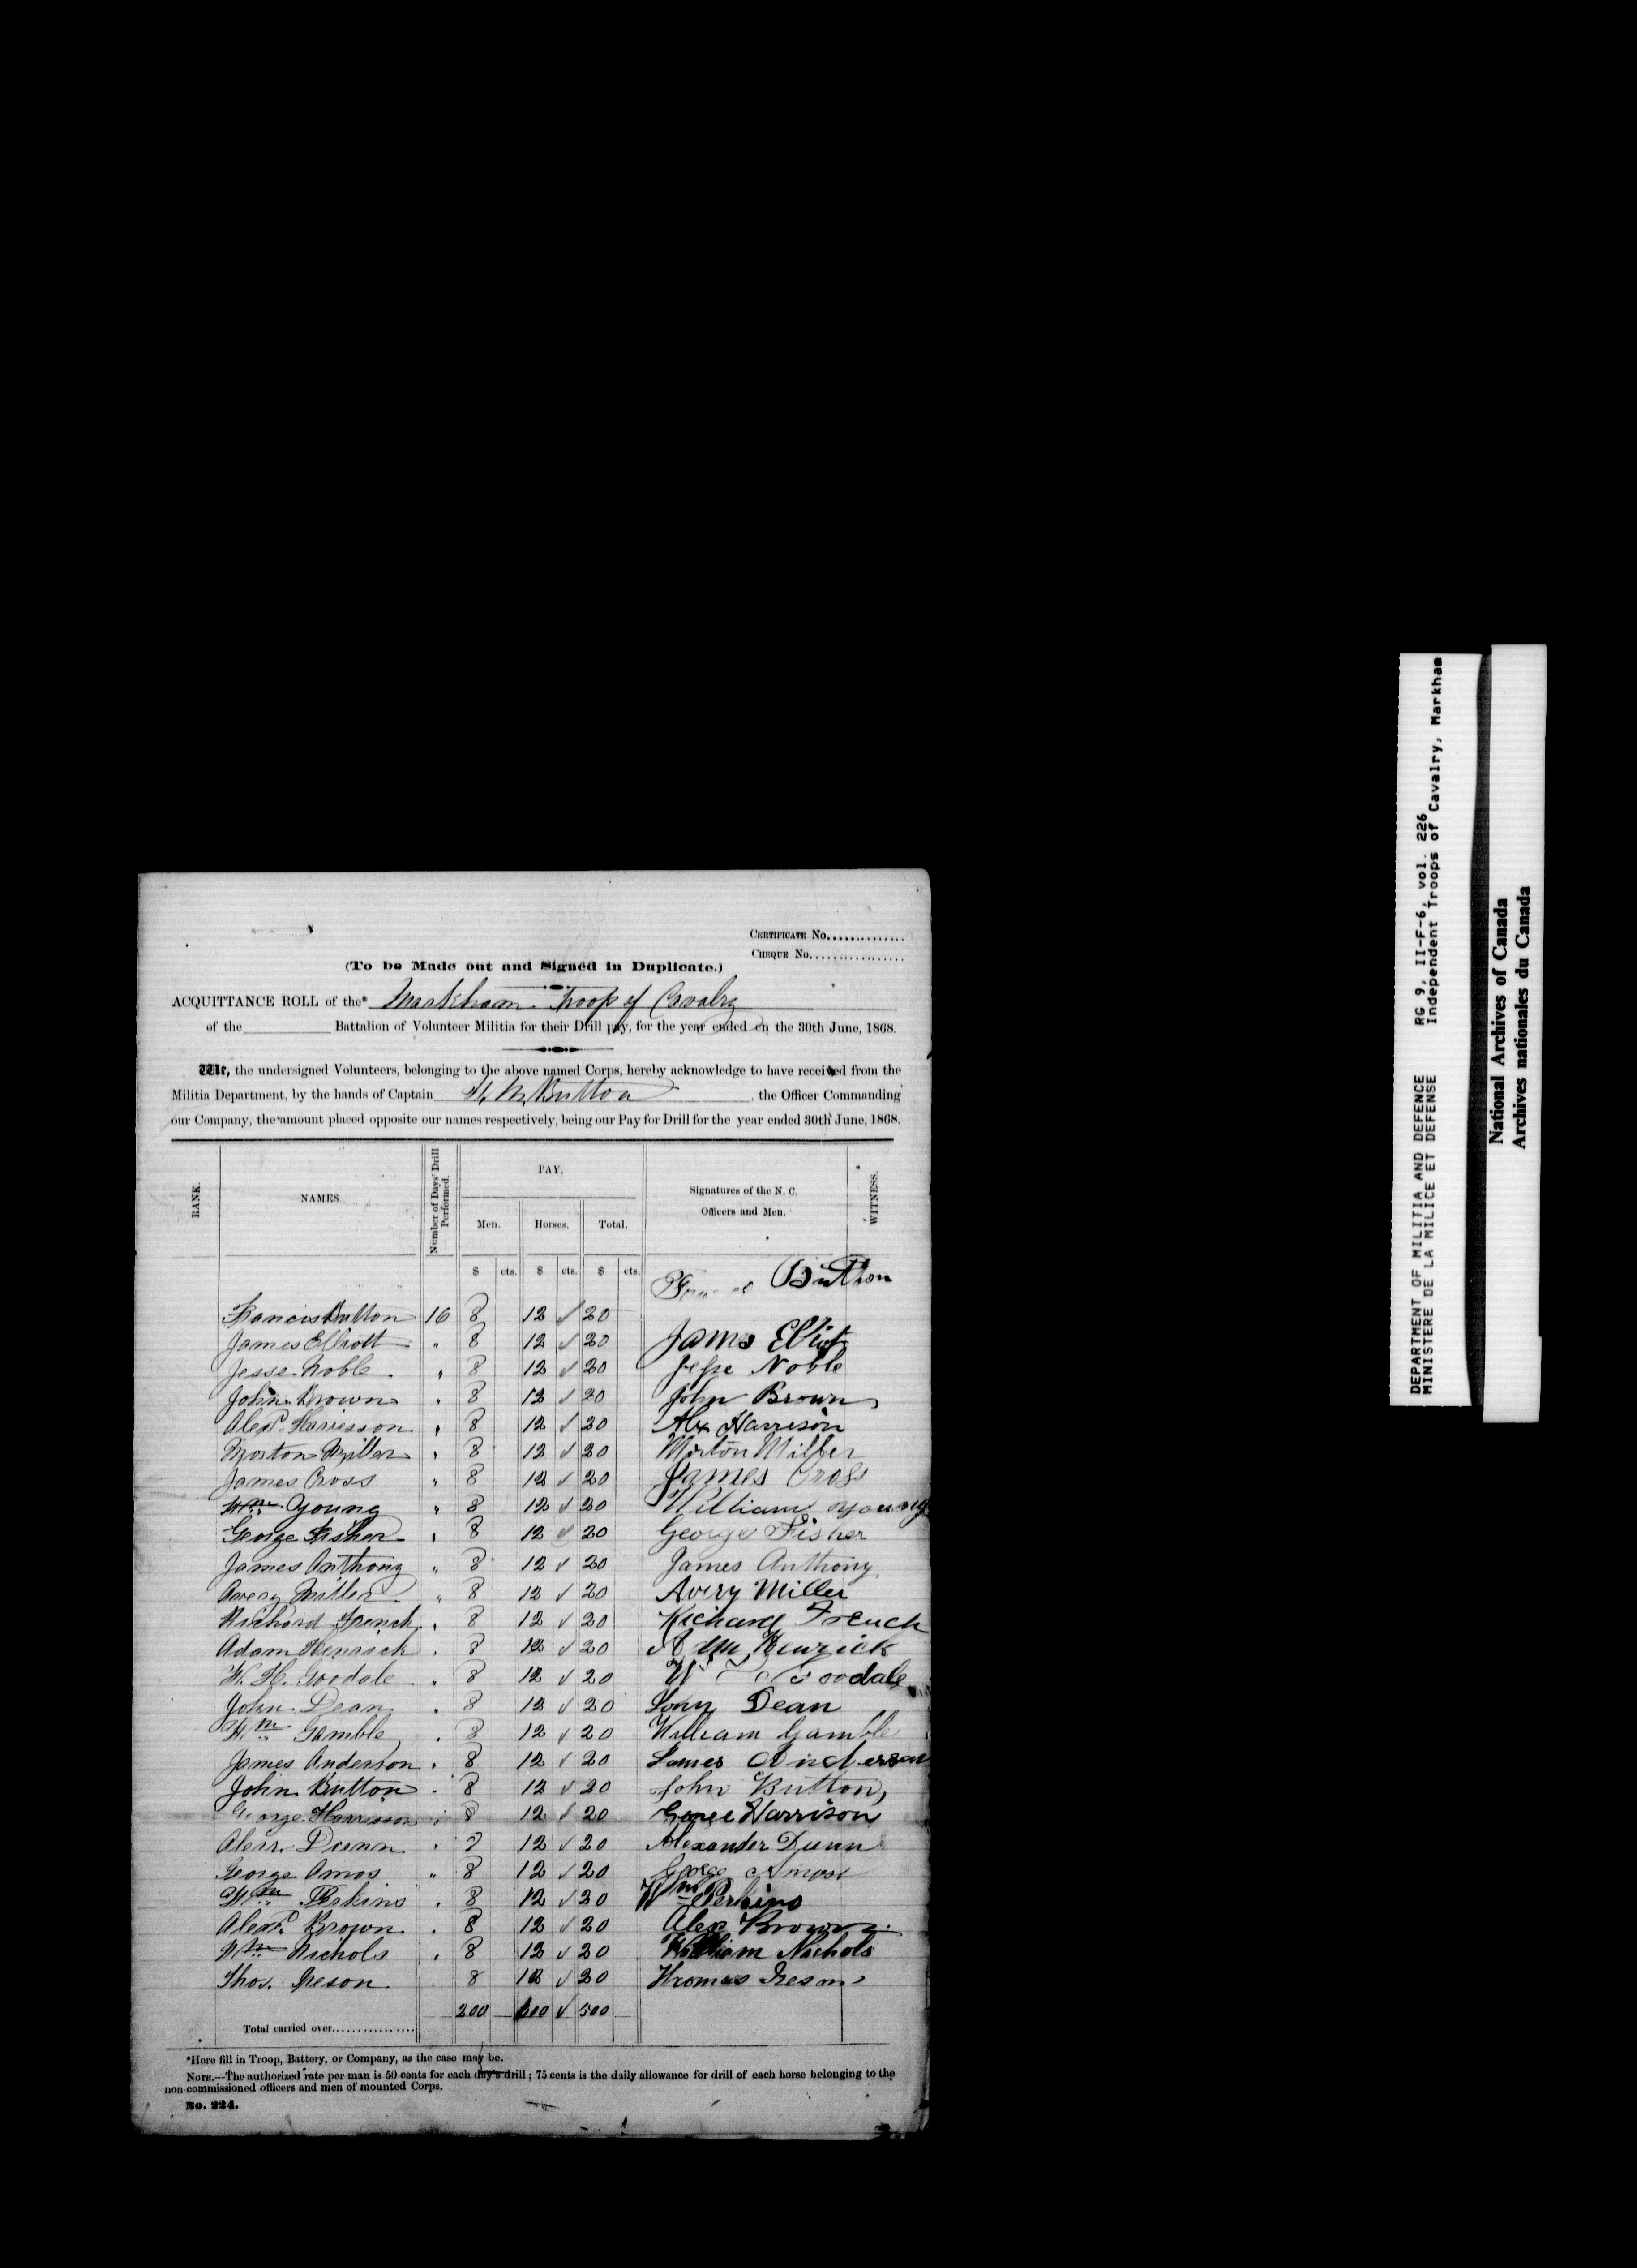 CERTIFICATE No..............
CHEQUE No.................
(To be Made out and Signed in Duplicate.)
ACQUITTANCE ROLL of the* Markham Troop of Cavalry
of the Battalion of Volunteer Militia for their Drill pay, for the year ended on the 30th June, 1868.
We, the undersigned Volunteers, belonging to the above named Corps, hereby acknowledge to have received from the
Militia Department, by the hands of Captain W. M. Button, the Officer Commanding
our Company, the amount placed opposite our names respectively, being our Pay for Drill for the year ended 30th June, 1868.
RANK. NAMES. Number of Days' Drill Performed. PAY. Signatures of the N. C. Officers and Men. WITNESS.
Men. Horses. Total.
$ cts. $ cts. $ cts.
Button
Francis Button 16 8 12 ✓ 20
James Elliott " 8 12 ✓ 20 James Elliot
Jesse Noble " 8 12 ✓ 20 Jesse Noble
John Brown " 8 12 ✓ 20 John Brown
Alexr. Harrisson " 8 12 ✓ 20 Alex Harrison
Morton Miller " 8 12 ✓ 20 Morton Miller
James Cross " 8 12 ✓ 20 James Cross
Wm Young " 8 12 ✓ 20 William Young
George Fisher " 8 12 ✓ 20 George Fisher
James Anthony " 8 12 ✓ 20 James Anthony
Avery Miller " 8 12 ✓ 20 Avery Miller
Richard French " 8 12 ✓ 20 Richard French
Adam Henrick " 8 12 ✓ 20 Henrick
W. H. Goodale " 8 12 ✓ 20 W Goodale
John Dean " 8 12 ✓ 20 John Dean
Wm Gamble " 8 12 ✓ 20 William Gamble
James Anderson " 8 12 ✓ 20 James Anderson
John Button " 8 12 ✓ 20 John Button,
George Harrisson " 8 12 ✓ 20 Harrison
Alexr. Dunn " 8 12 ✓ 20 Alexander Dunn
George Amos " 8 12 ✓ 20 George
Wm Perkins " 8 12 ✓ 20 Wm Perkins
Alexr. Brown " 8 12 ✓ 20 Alex Brown
Wm Nichols " 8 12 ✓ 20 William Nichols
Thos. Ireson " 8 12 ✓ 20 Thomas Ireson
200 300 ✓ 500
Total carried over................
*Here fill in Troop, Battery, or Company, as the case may be.
NOTE.—The authorized rate per man is 50 cents for each day's drill; 75 cents is the daily allowance for drill of each horse belonging to the
non-commissioned officers and men of mounted Corps.
No. 224.
DEPARTMENT OF MILITIA AND DEFENCE RG 9, II-F-6, vol. 226
MINISTERE DE LA MILICE ET DEFENSE Independent Troops of Cavalry, Markham
National Archives of Canada
Archives nationales du Canada